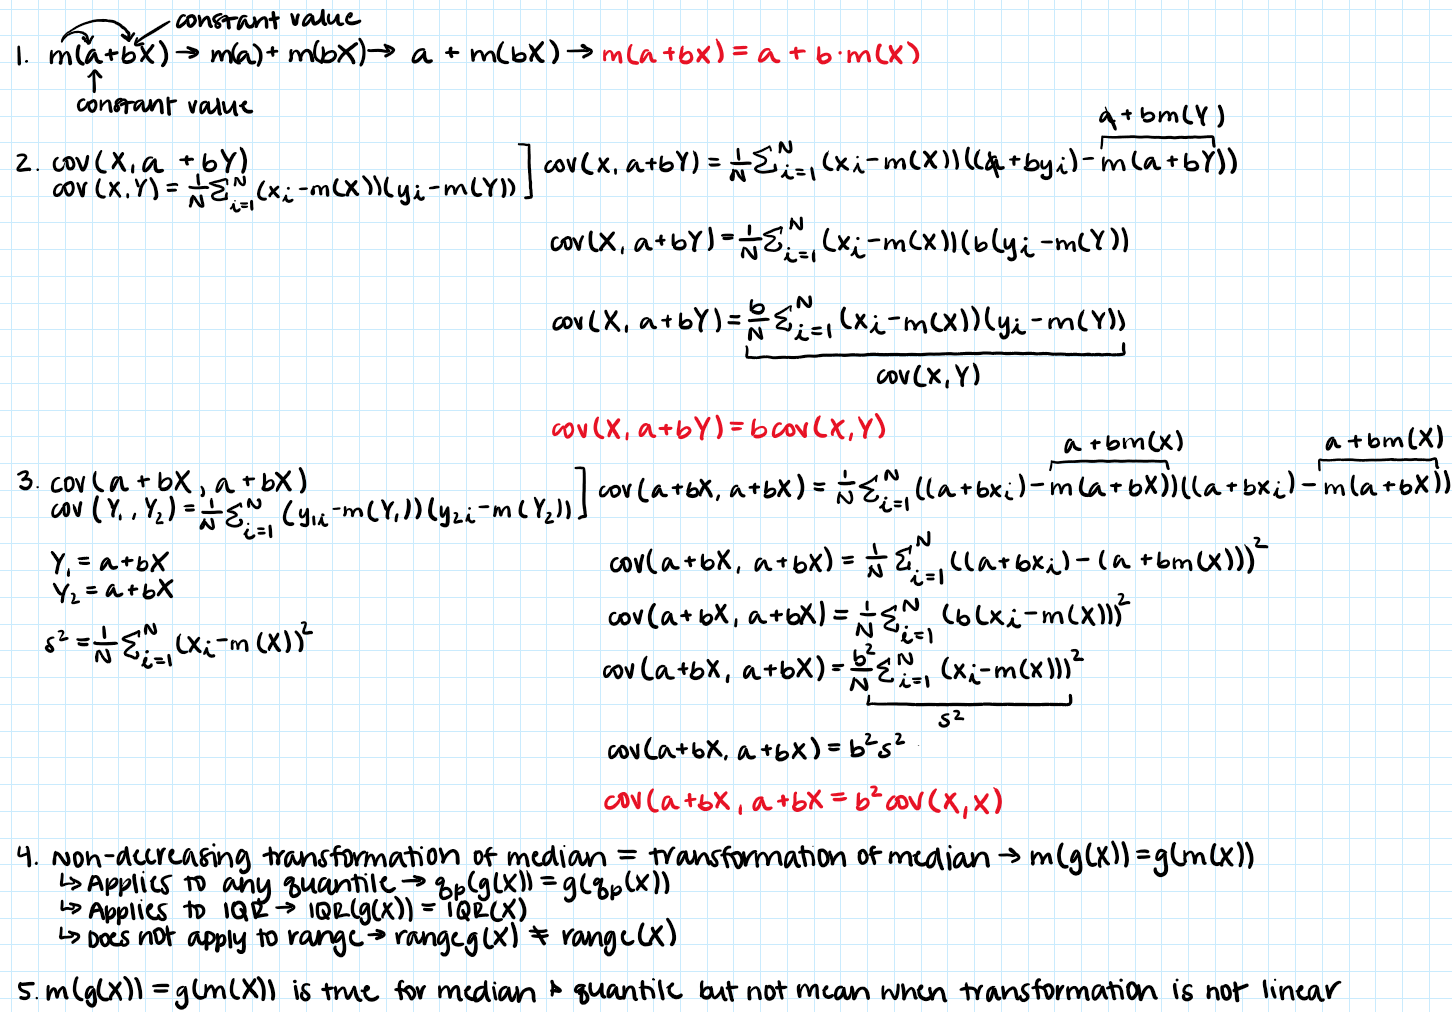 constant value
1. m(a+bX) → m(a) + m(bX) → a + m(bX) → m(a+bx) = a + b·m(X)
constant value
a + bm(Y)
2. cov(X, a + bY)
cov(X,Y) = 1/N Σ_{i=1}^N (x_i - m(X))(y_i - m(Y))
cov(X, a+bY) = 1/N Σ_{i=1}^N (x_i - m(X))((a+by_i) - m(a+bY))
cov(X, a+bY) = 1/N Σ_{i=1}^N (x_i - m(X))(b(y_i - m(Y))
cov(X, a+bY) = b/N Σ_{i=1}^N (x_i - m(X))(y_i - m(Y))
cov(X,Y)
cov(X, a+bY) = b cov(X,Y)
a + bm(X) a + bm(X)
3. cov(a + bX, a + bX)
cov(Y_1, Y_2) = 1/N Σ_{i=1}^N (y_{1i} - m(Y_1))(y_{2i} - m(Y_2))
Y_1 = a + bX
Y_2 = a + bX
s² = 1/N Σ_{i=1}^N (x_i - m(X))²
cov(a+bX, a+bX) = 1/N Σ_{i=1}^N ((a+bx_i) - m(a+bX))((a+bx_i) - m(a+bX))
cov(a+bX, a+bX) = 1/N Σ_{i=1}^N ((a+bx_i) - (a+bm(X)))²
cov(a+bX, a+bX) = 1/N Σ_{i=1}^N (b(x_i - m(X)))²
cov(a+bX, a+bX) = b²/N Σ_{i=1}^N (x_i - m(X)))²
s²
cov(a+bX, a+bX) = b²s²
cov(a+bX, a+bX = b² cov(X,X)
4. Non-decreasing transformation of median = transformation of median → m(g(X)) = g(m(X))
↳ Applies to any quantile → q_p(g(X)) = g(q_p(X))
↳ Applies to IQR → IQR(g(X)) = IQR(X)
↳ Does not apply to range → range g(X) ≠ range(X)
5. m(g(X)) = g(m(X)) is true for median & quantile but not mean when transformation is not linear